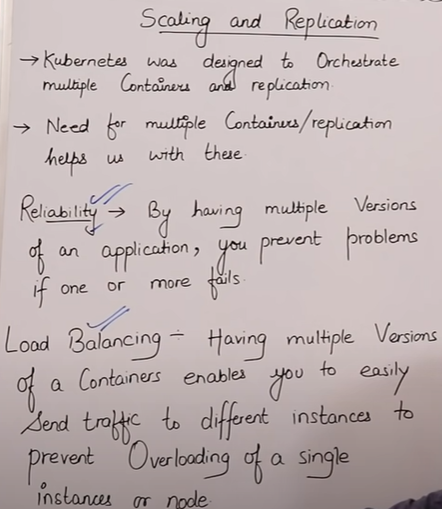 Scaling and Replication
→ Kubernetes was designed to Orchestrate
multiple Containers and replication.
→ Need for multiple Containers/replication
helps us with these.
Reliability → By having multiple Versions
of an application, you prevent problems
if one or more fails.
Load Balancing ÷ Having multiple Versions
of a Containers enables you to easily
Send traffic to different instances to
prevent Overloading of a single
instances or node.